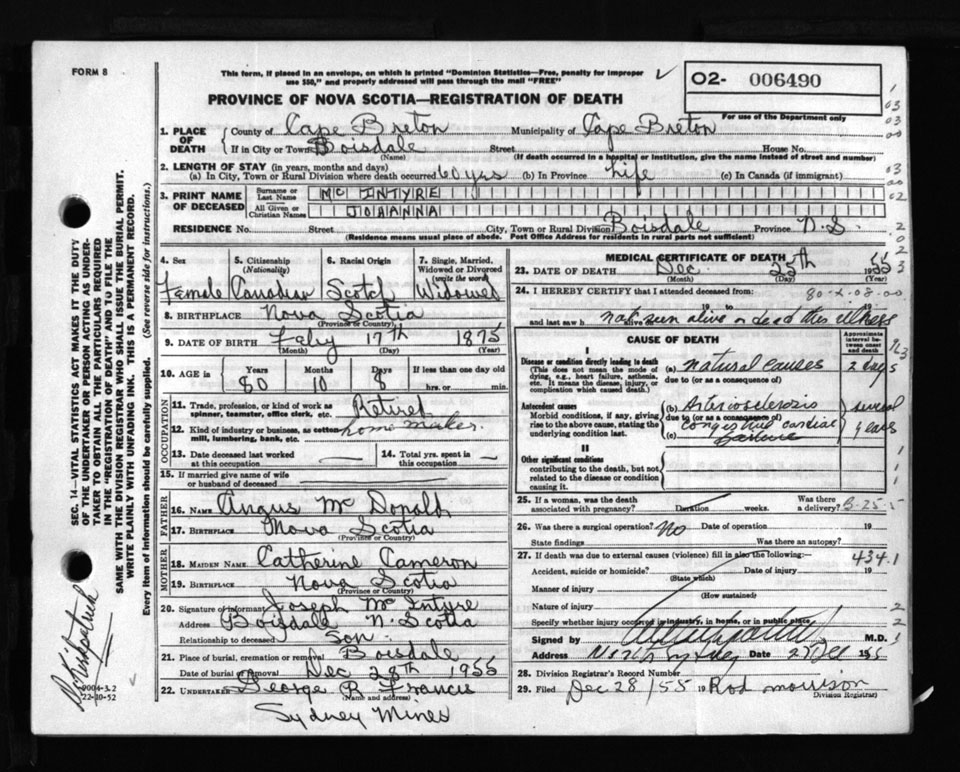 FORM 8
This form, if placed in an envelope, on which is printed "Dominion Statistics—Free, penalty for improper
use $50," and properly addressed will pass through the mail "FREE"
O2- 006490
For use of the Department only
PROVINCE OF NOVA SCOTIA—REGISTRATION OF DEATH
1. PLACE OF DEATH
County of Cape Breton Municipality of Cape Breton
If in City or Town Boisdale Street House No.
(Name) (If death occurred in a hospital or institution, give the name instead of street and number)
2. LENGTH OF STAY (in years, months and days)
(a) In City, Town or Rural Division where death occurred 60 yrs (b) In Province Life (c) In Canada (if immigrant)
3. PRINT NAME OF DECEASED
Surname or Last Name Mc INTYRE
All Given or Christian Names JOHANNA
RESIDENCE No. Street City, Town or Rural Division Boisdale Province N.S.
(Residence means usual place of abode. Post Office Address for residents in rural parts not sufficient)
4. Sex 5. Citizenship (Nationality) 6. Racial Origin 7. Single, Married, Widowed or Divorced (write the word)
Female Canadian Scotch Widowed
8. BIRTHPLACE Nova Scotia
(Province or Country)
9. DATE OF BIRTH Feby 17th 1875
(Month) (Day) (Year)
10. AGE in Years Months Days If less than one day old
80 10 8 hrs. or min.
OCCUPATION
11. Trade, profession, or kind of work as spinner, teamster, office clerk, etc. Retired
12. Kind of industry or business, as cotton mill, lumbering, bank, etc. home maker
13. Date deceased last worked at this occupation — 14. Total yrs. spent in this occupation —
15. If married give name of wife or husband of deceased
FATHER
16. NAME Angus Mc Donald
17. BIRTHPLACE Nova Scotia
(Province or Country)
MOTHER
18. MAIDEN NAME Catherine Cameron
19. BIRTHPLACE Nova Scotia
(Province or Country)
20. Signature of informant Joseph Mc Intyre
Address Boisdale N. Scotia
Relationship to deceased Son
21. Place of burial, cremation or removal Boisdale
Date of burial or removal Dec 28th 1955
22. Undertaker George R Francis
(Name and address)
Sydney Mines
MEDICAL CERTIFICATE OF DEATH
23. DATE OF DEATH Dec. 25th 1955
(Month) (Day)
24. I HEREBY CERTIFY that I attended deceased from:
19 to 19
and last saw h alive on not seen alive or dead this illness
CAUSE OF DEATH
Approximate interval between onset and death
I
Disease or condition directly leading to death
(This does not mean the mode of dying, e.g., heart failure, asthenia, etc. It means the disease, injury, or complication which caused death.)
(a) natural causes 2 days
due to (or as a consequence of)
Antecedent causes
Morbid conditions, if any, giving rise to the above cause, stating the underlying condition last.
(b) Arteriosclerosis several years
due to (or as a consequence of)
(c) congestive cardiac failure
II
Other significant conditions
contributing to the death, but not related to the disease or condition causing it.
25. If a woman, was the death associated with pregnancy? Duration weeks. Was there a delivery?
26. Was there a surgical operation? No Date of operation 19
State findings Was there an autopsy?
27. If death was due to external causes (violence) fill in also the following: 434.1
Accident, suicide or homicide? Date of injury 19
(State which)
Manner of injury
(How sustained)
Nature of injury
Specify whether injury occurred in industry, in home, or in public place
Signed by M.D.
Address North Sydney Date 27 Dec 1955
28. Division Registrar's Record Number
29. Filed Dec 28/55 19 Rod Morrison
Division Registrar
SEC. 14—VITAL STATISTICS ACT MAKES IT THE DUTY
OF THE UNDERTAKER OR PERSON ACTING AS UNDER-
TAKER TO OBTAIN ALL THE PARTICULARS REQUIRED
IN THE "REGISTRATION OF DEATH" AND TO FILE THE
SAME WITH THE DIVISION REGISTRAR WHO SHALL ISSUE THE BURIAL PERMIT.
WRITE PLAINLY WITH UNFADING INK. THIS IS A PERMANENT RECORD.
Every item of information should be carefully supplied. (See reverse side for instructions.)
Kirkpatrick
9004-3.2
22-10-52